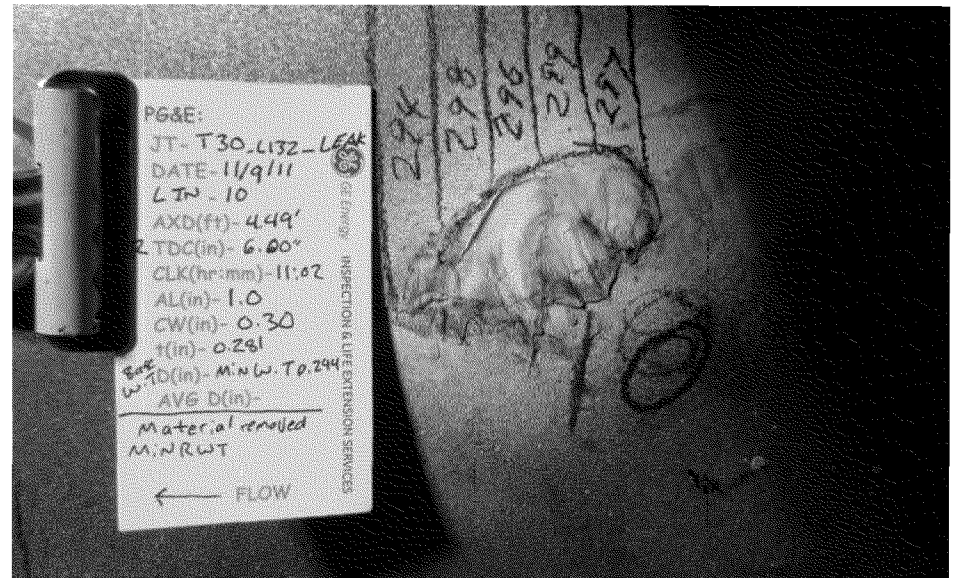 PG&E:
JT- T30_L132_LEAK
DATE- 11/9/11
LIN - 10
AXD(ft)- 4.49'
TDC(in)- 6.00"
CLK(hr:mm)- 11:02
AL(in)- 1.0
CW(in)- 0.30
t(in)- 0.281
D(in)- MiN W.T 0.244
AVG D(in)-
Material removed
MiNRWT
← FLOW
GE Energy INSPECTION & LIFE EXTENSION SERVICES
294
298
296
299
297